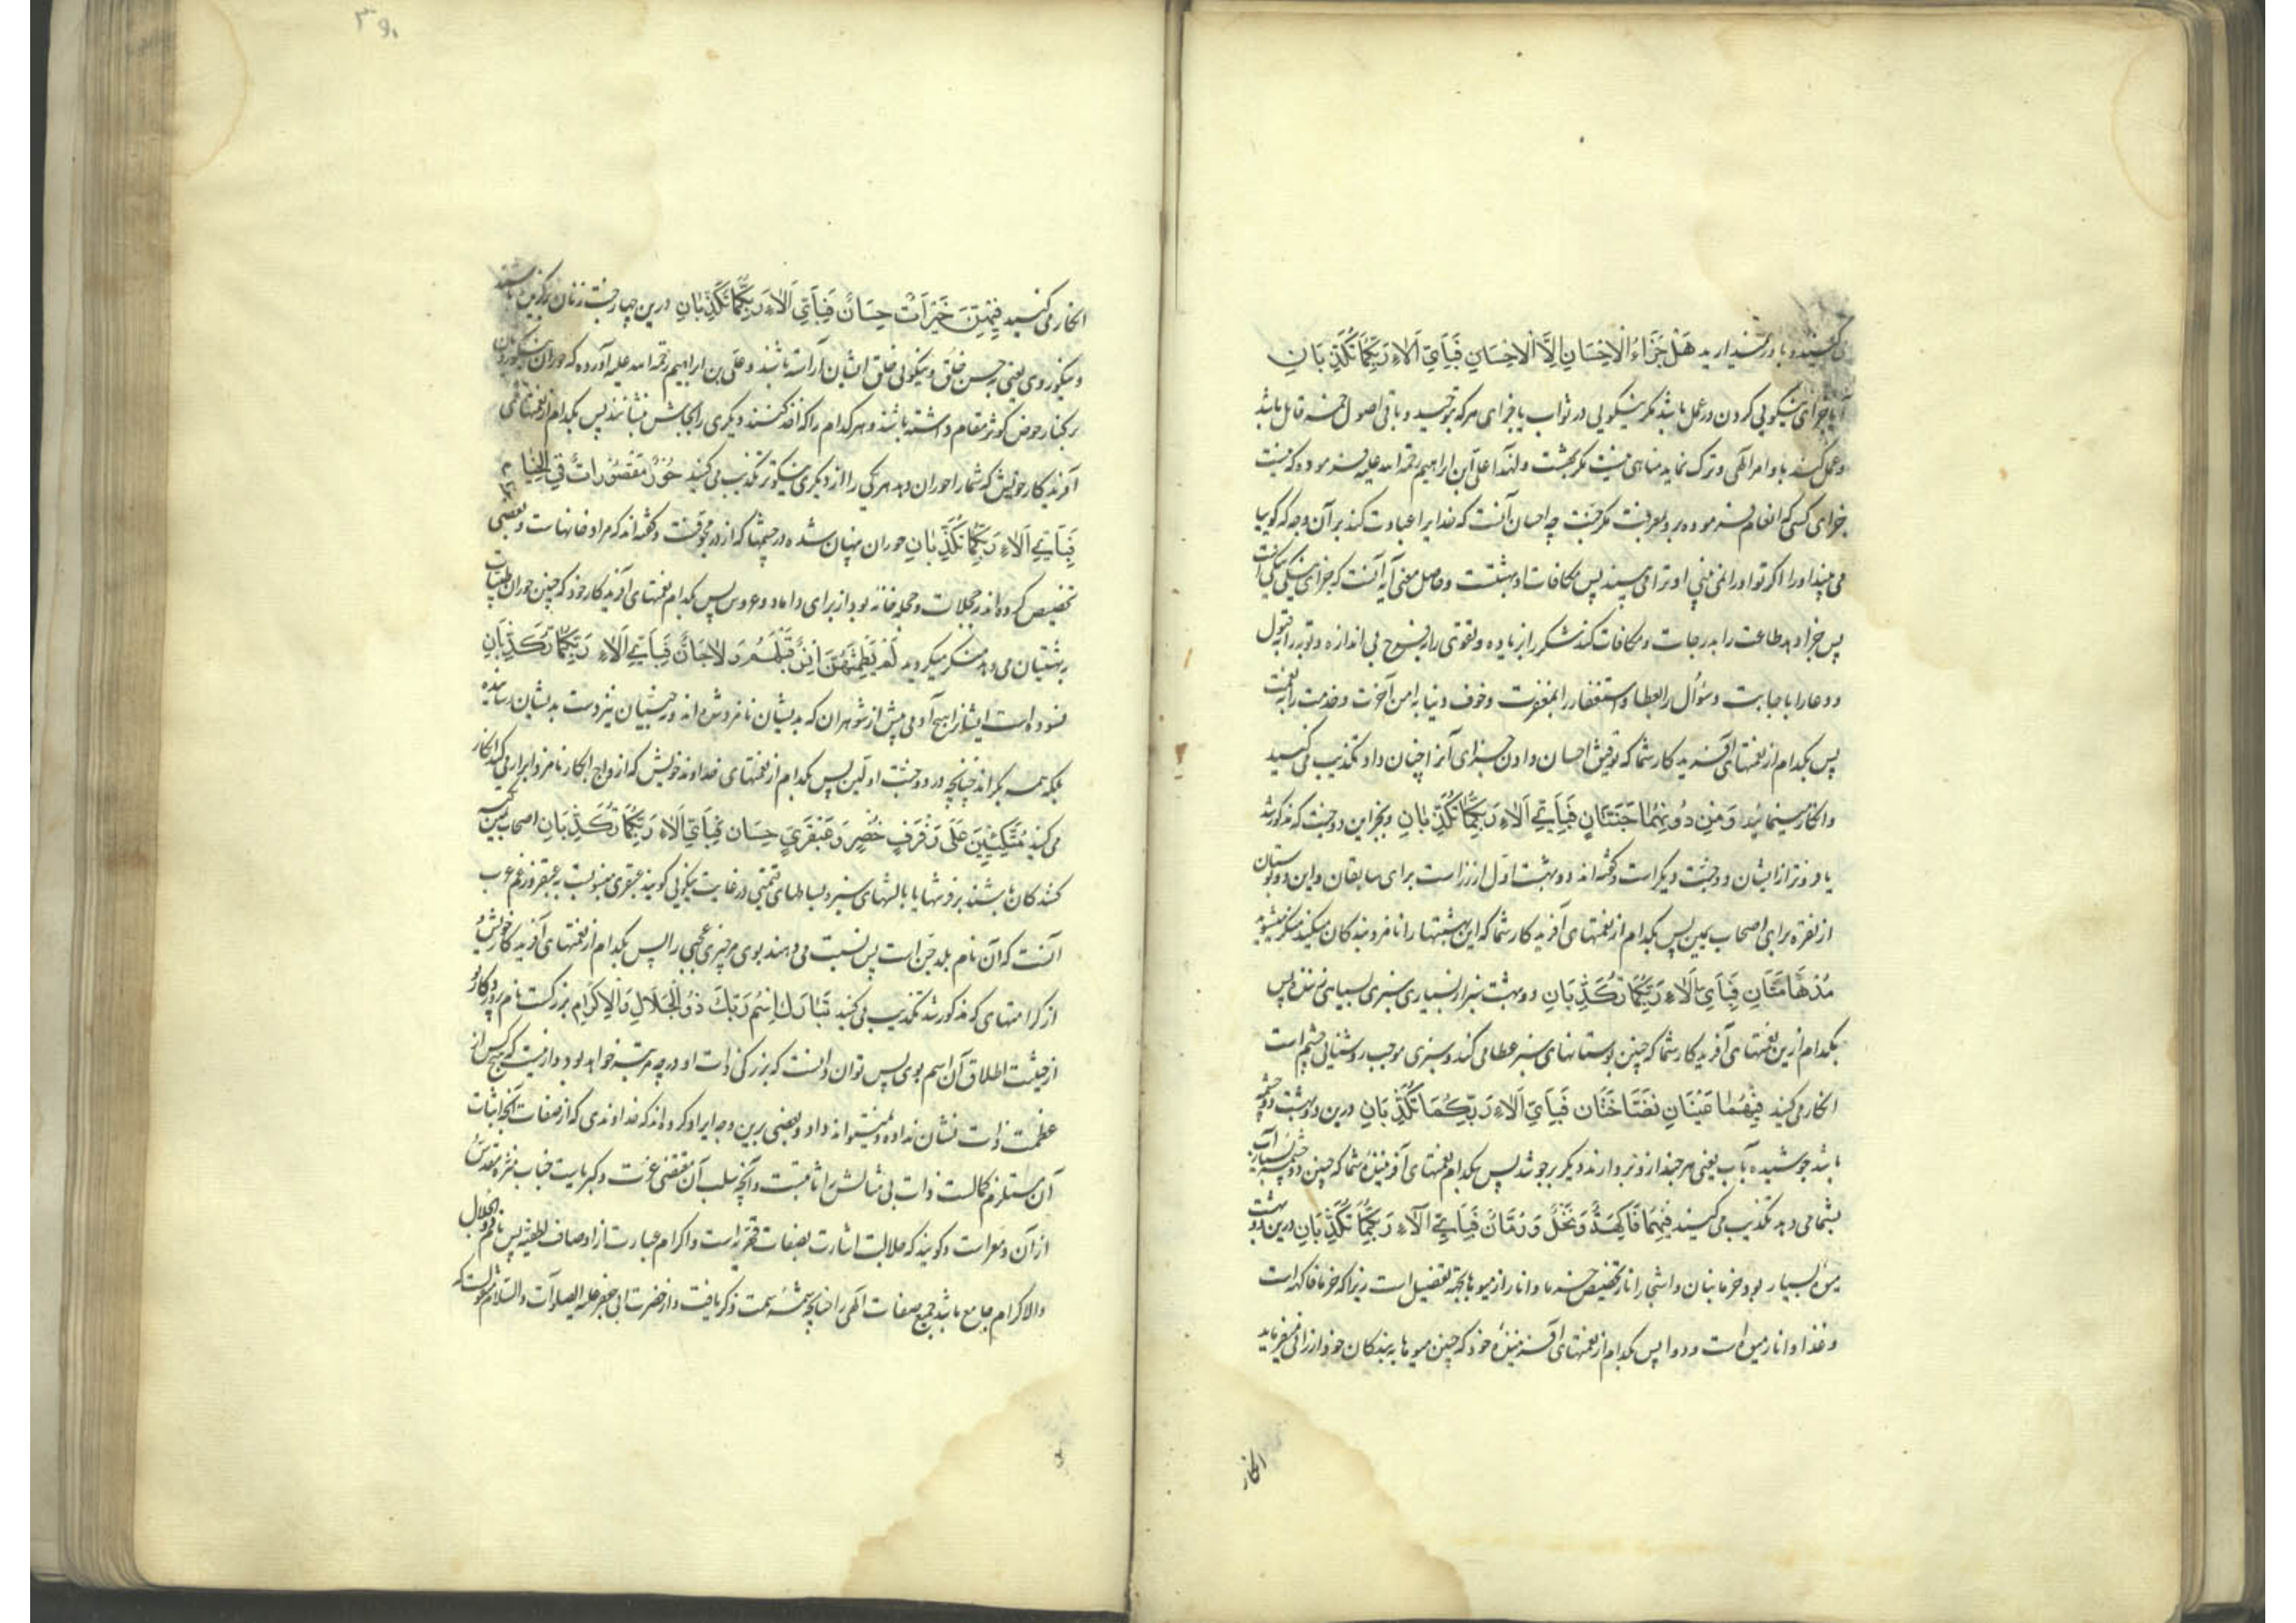 کنید و باور نمیدارید هَلْ جَزَاءُ الْاِحْسَانِ اِلَّا الْاِحْسَانِ فَبِاَيِّ اَلَاءِ رَبِّكُمَا تُكَذِّبَانِ
آیا جزای نیکویی کردن در عمل باشد مکر نیکویی در ثواب یا جزای هر که توحید و باقی اصول خمسه قایل باشد
و عمل کند باوامر الهی و ترک نماید مناهی نیست مکر بهشت و لهذا علی ابن ابراهیم رحمة الله علیه فرموده که نیست
جزای کسی که انعام فرموده بر و معرفت مکر جنت چه احسان آنست که خدایرا عبادت کند بر آن وجه که کویا
می بیند او را اکر تو او را نمی بینی او ترا می بیند پس مکافات او بهشتست و حاصل معنی آیه آنست که جزای نیکی نیکی است
پس جزا دهد طاعت را بدرجات و مکافات کند شکر را بزیاده و تقوی را بفتوح بی اندازه و توبه را بقبول
و دعا را باجابت و سؤال را بعطا و استغفار را بمغفرت و خوف دنیا به امن آخرت و خدمت را بنعمت
پس بکدام از نعمتهای آفریدکار شما که توفیق احسان دادن جزای آنرا چنان داد تکذیب می کنید
و انکار مینمائید وَمِنْ دُونِهِمَا جَنَّتَانِ فَبِاَيِّ اَلَاءِ رَبِّكُمَا تُكَذِّبَانِ و بجز این دو جنت که مذکور شد
یا فروتر از ایشان دو جنت دیکر است و کفته اند دو بهشت اول از زر است برای سابقان و این دو بوستان
از نقره برای اصحاب یمین پس بکدام از نعمتهای آفریدکار شما که این بهشتها را نامزد بندکان میکند منکر میشوید
مُدْهَامَّتَانِ فَبِاَيِّ اَلَاءِ رَبِّكُمَا تُكَذِّبَانِ دو بهشت سبز از بسیاری سبزی بسیاهی زنند پس
بکدام ازین نعمتهای آفریدکار شما که چنین بوستانهای سبز عطا می کند و سبزی موجب روشنایی چشم است
انکار می کنید فِيهِمَا عَيْنَانِ نَضَّاخَتَانِ فَبِاَيِّ اَلَاءِ رَبِّكُمَا تُكَذِّبَانِ درین دو بهشت دو چشمه
باشد جوشیده بآب یعنی هر چند ازو بردارند دیکر برجوشد پس بکدام نعمتهای آفرینندۀ شما که چنین دو چشمه بسیار آب
بشما می دهد تکذیب می کنید فِيهِمَا فَاكِهَةٌ وَنَخْلٌ وَرُمَّانٌ فَبِاَيِّ آلَاءِ رَبِّكُمَا تُكَذِّبَانِ درین دو بهشت
میوۀ بسیار بود و خرما بنان و اشجار انار تخصیص خرما و انار از میوها بجهة تفضیل است زیرا که خرما فاکهه است
و غذا و انار میوه است و دوا پس بکدام از نعمتهای آفرینندۀ خود که چنین میوها به بندکان خود ارزانی میفرماید
انکار
انکار می کنید فِيهِنَّ خَيْرَاتٌ حِسَانٌ فَبِاَيِّ اَلَاءِ رَبِّكُمَا تُكَذِّبَانِ درین چهار جنت زنان برکزیده باشند
و نیکوروی یعنی بحسن خُلق و نیکویی خلق ایشان آراسته باشند و علی بن ابراهیم رحمة الله علیه آورده که حوران نیکوروی
بر کنار حوض کوثر مقام داشته باشند و هر کدام را که اخذ کنند دیکری را بجایش بنشانند پس بکدام از نعمتهای
آفریدکار خویش که شما را حوران دهد هر یکی را از دیکری نیکوتر تکذیب می کنید حُورٌ مَقْصُورَاتٌ فِي الْخِيَامِ
فَبِاَيِّ اَلَاءِ رَبِّكُمَا تُكَذِّبَانِ حوران پنهان شده در خیمها که از در مجوفست و کفته اند که مراد خانهاست و بعضی
تخصیص کرده اند بحجلات و حجله خانه بود از برای داماد و عروس پس بکدام نعمتهای آفریدکار خود که چنین حوران
بهشتیان می دهد منکر میکردید لَمْ يَطْمِثْهُنَّ اِنْسٌ قَبْلَهُمْ وَلَاجَانٌّ فَبِاَيِّ اَلَاءِ رَبِّكُمَا تُكَذِّبَانِ
نسوده است ایشانرا هیچ آدمی پیش از شوهران که بدیشان نامزد شده اند و نه جنیان نیز دست بدیشان رسانیده
بلکه همه بکراند چنانچه در دو جنت اولین پس بکدام از نعمتهای خداوند خویش که ازواج ابکار نامزد ابرار می کند انکار
می کنید مُتَّكِئِينَ عَلَى رَفْرَفٍ خُضْرٍ وَعَبْقَرِيٍّ حِسَانٍ فَبِاَيِّ اَلَاءِ رَبِّكُمَا تُكَذِّبَانِ اصحاب یمین تکیه
کنندکان باشند بر فرشها یا بالشهای سبز و بساطهای قیمتی در غایت نیکویی کویند عبقری منسوبست به عبقر و زعم عرب
آنست که آن نام بلد جن است پس نسبت می دهند بوی هر چیزی عجبی را پس بکدام از نعمتهای آفریدکار خویش
از کرامتهای که مذکور شد تکذیب می کنید تَبَارَكَ اسْمُ رَبِّكَ ذُو الْجَلَالِ وَالْاِكْرَامِ بزرکست نام پروردکار تو
از حیثیت اطلاق آن اسم بوی پس توان دانست که بزرکی ذات او در چه مرتبه خواهد بود و ازینست که هیچکس از
عظمت ذات نشان نداده و نمیتواند داد و بعضی برین وجه ایراد کرده اند که خداوندی که از صفات آنچه اثبات
آن مستلزم کمالست ذات بی مثالش را ثابتست و آنچه سلب آن مقتضی عزت و کبریاست جناب منزه مقدس
از آن معراست و کویند که جلالت اشارت بصفات قهریه است و اکرام عبارت از اوصاف لطفیه پس نام ذو الجلال
والاکرام جامع باشد جمیع صفات الهی را چنانچه سمت ذکر یافت و از حضرت ابی جعفر علیه الصلوات والسلام منقولست که